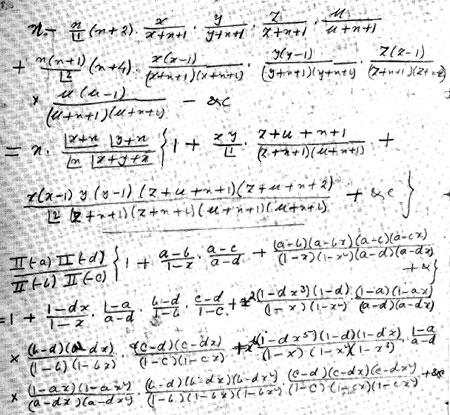 n - n/⌊1 (n+2) · x/(x+n+1) · y/(y+n+1) · z/(z+n+1) · u/(u+n+1)
+ n(n+1)/⌊2 (n+4) · x(x-1)/((x+n+1)(x+n+2)) · y(y-1)/((y+n+1)(y+n+2)) · z(z-1)/((z+n+1)(z+n+2))
× u(u-1)/((u+n+1)(u+n+2)) - &c
= n · ⌊x+n ⌊y+n / (⌊n ⌊x+y+n) { 1 + xy/⌊1 · (z+u+n+1)/((z+n+1)(u+n+1)) +
x(x-1) y(y-1) (z+u+n+1)(z+u+n+2) / (⌊2 (z+n+1)(z+n+2)(u+n+1)(u+n+2)) + &c }
Π(-a) Π(-d) / (Π(-b) Π(-c)) { 1 + (a-b)/(1-x) · (a-c)/(a-d) + (a-b)(a-bx)(a-c)(a-cx) / ((1-x)(1-x²)(a-d)(a-dx))
+ & }
= 1 + (1-dx)/(1-x) · (1-a)/(a-d) · (b-d)/(1-b) · (c-d)/(1-c) + x² (1-dx³)(1-d)/((1-x)(1-x²)) · (1-a)(1-ax)/((a-d)(a-dx))
× (b-d)(b-dx)/((1-b)(1-bx)) · (c-d)(c-dx)/((1-c)(1-cx)) + x⁶ (1-dx⁵)(1-d)(1-dx)/((1-x)(1-x²)(1-x³)) · (1-a)/(a-d)
× (1-ax)(1-ax²)/((a-dx)(a-dx²)) · (b-d)(b-dx)(b-dx²)/((1-b)(1-bx)(1-bx²)) · (c-d)(c-dx)(c-dx²)/((1-c)(1-cx)(1-cx²)) + &c